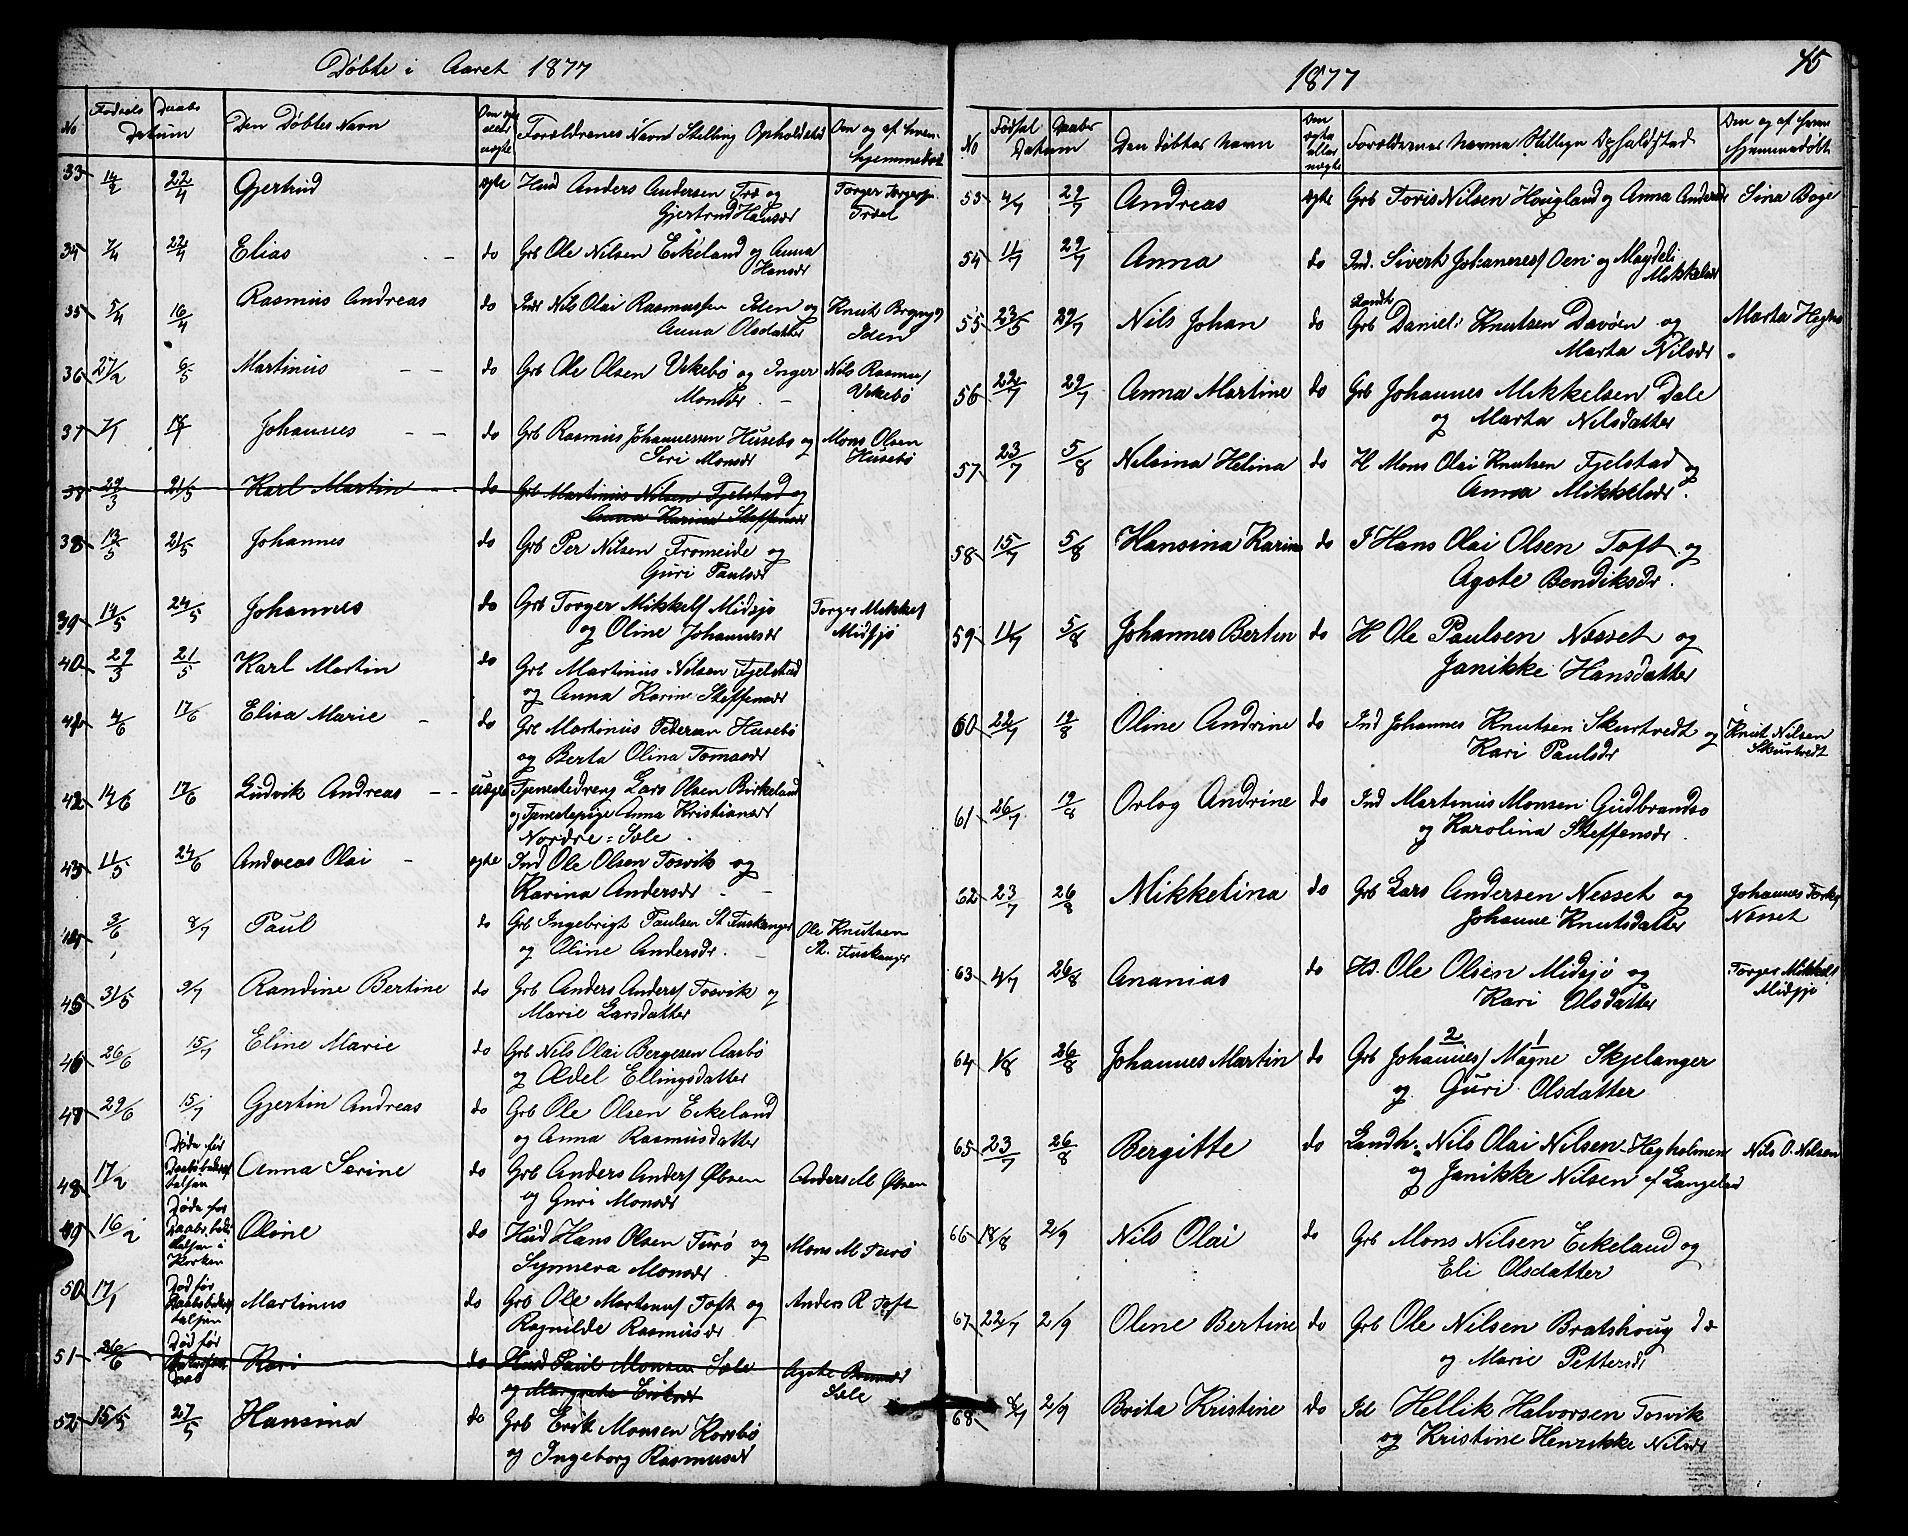 Døbte i Aaret 1877
No Fødsels Daabs Datum Den Døbtes Navn Forældrenes Navn Stilling Opholdsted Om og af hvem hjemmedøbt
33 14/2 22/4 Gjertrud ægte Husd Anders Andersen Træ og Torger Torgersen
Gjertrud Hansdr Træl
34 7/4 22/4 Elias do Grb Ole Nilsen Eikeland og Anna
Hansdr
35 5/4 16/4 Rasmus Andreas do Indr Nils Olai Rasmussen Iden og Knut Brynj
Anna Olsdatter Iden
36 27/2 6/5 Martinus do Grb Ole Olsen Virkebø og Inger Nils Rasmus
Monsdr Virkebø
37 7/1 Johannes do Grb Rasmus Johannessen Husebø og Mons Olsen
Siri Monsdr Husebø
38 29/3 21/5 Karl Martin do Grb Martinius Nilsen Fjelstad og
Anna Karina Steffensdr
38 13/5 21/5 Johannes do Grb Per Nilsen Fromeide og
Guri Paulsdr
39 14/5 24/5 Johannes do Grb Torger Mikkels Midsjø Torger Mikkels
og Oline Johannesdr Midsjø
40 29/3 21/5 Karl Martin do Grb Martinius Nilsen Fjelstad
og Anna Karine Steffensdr
41 4/6 17/6 Elisa Marie do Grb Martinius Petersen Husebø
og Berta Olina Tomasdr
42 14/6 17/6 Ludvik Andreas uægte Tjenestedreng Lars Olsen Birkeland
og Tjenestepige Anna Kristiansdr
Nordre Sæle
43 11/5 24/6 Andreas Olai ægte Ind Ole Olsen Tosvik og
Karina Andersdr
44 3/6 8/7 Paul do Grb Ingebrigt Paulsen St. Tuskanger Ole Knutsen
og Oline Andersdr. St. Tuskanger
45 31/5 9/7 Randine Bertine do Grb Anders Anders Tosvik og
Marie Larsdatter
46 26/6 15/7 Eline Marie do Grb Nils Olai Bergesen Aasbø
og Ædel Ellingsdatter
47 29/6 15/7 Gjertin Andreas do Grb Ole Olsen Eikeland
og Anna Rasmusdatter
48 17/2 Døde før Daabsbekræftelsen Anna Serine do Grb Anders Anders Øbsen Anders M Øbsen
og Guri Monsdr
49 16/2 Døde før Daabsbekræftelsen i Kirken Oline do Husd Hans Olsen Turø og Mons M Turø
Synneva Monsdr
50 17/1 Død før Daabsbekræftelsen Martinus do Grb Ole Martinus Toft og Anders R Toft
Ragnilde Rasmusdr
51 26/6 Død før Kari do Husd Paul Monsen Sæle Agate
og Margrethe Eriksdr Sæle
52 15/5 27/5 Hansina do Grb Erik Monsen Korsbø
og Ingeborg Rasmusdr
1877
45
No Fødsel Daabs Datum Den døbtes Navn Om ægte eller uægte Forældrenes Navne Stilling Opholdsted Om og af hvem hjemmedøbt
53 4/7 29/7 Andreas ægte Grb Toris Nilsen Hougland og Anna Andersdr Sina Boge
54 11/7 29/7 Anna do Ind. Sivert Johannes Oen og Magdeli
Mikkelsdr
55 23/5 29/7 Nils Johan do Landh Marta Hegho
Grb Daniel Knutsen Davøen og
Marta Nilsdr
56 22/7 29/7 Anna Martine do Grb Johannes Mikkelsen Dale
og Marta Nilsdatter
57 23/7 5/8 Nilsina Helina do H Mons Olai Knutsen Fjelstad og
Anna Mikkelsdr.
58 15/7 5/8 Hansina Karina do I Hans Olai Olsen Toft og
Agote Bendiksdr.
59 11/7 5/8 Johannes Bertin do H Ole Paulsen Nesset og
Janikke Hansdatter
60 22/7 19/8 Oline Andrine do Ind Johannes Knutsen Skurtvedt og Knut Nilsen
Kari Paulsdr Skurtvedt
61 26/7 19/8 Orlog Andrine do Ind Martinus Monsen Gudbrandsø
og Karolina Steffensdr.
62 23/7 26/8 Mikkelina do Grb Lars Andersen Nesset og Johannes Torkj
Johanne Knutsdatter Nesset
63 4/7 26/8 Ananias do H. Ole Olsen Midsjø og Torger Mikkels
Kari Olsdatter Midsjø
64 1/8 26/8 Johannes Martin do Grb Johannes Magne Skjelanger
og Guri Olsdatter
65 23/7 26/8 Bergitte do Landh. Nils Olai Nilsen Hegholmen Nils O. Nilsen
og Janikke Nilsen f Langeland
66 18/8 2/9 Nils Olai do Grb Mons Nilsen Eikeland og
Eli Olsdatter
67 22/7 2/9 Oline Bertine do Grb Ole Nilsen Bratshoug
og Marie Pettersdr
68 2/9 Brita Kristine do Id Hellik Halvorsen Tosvik
og Kristine Henrikke Nilsdr